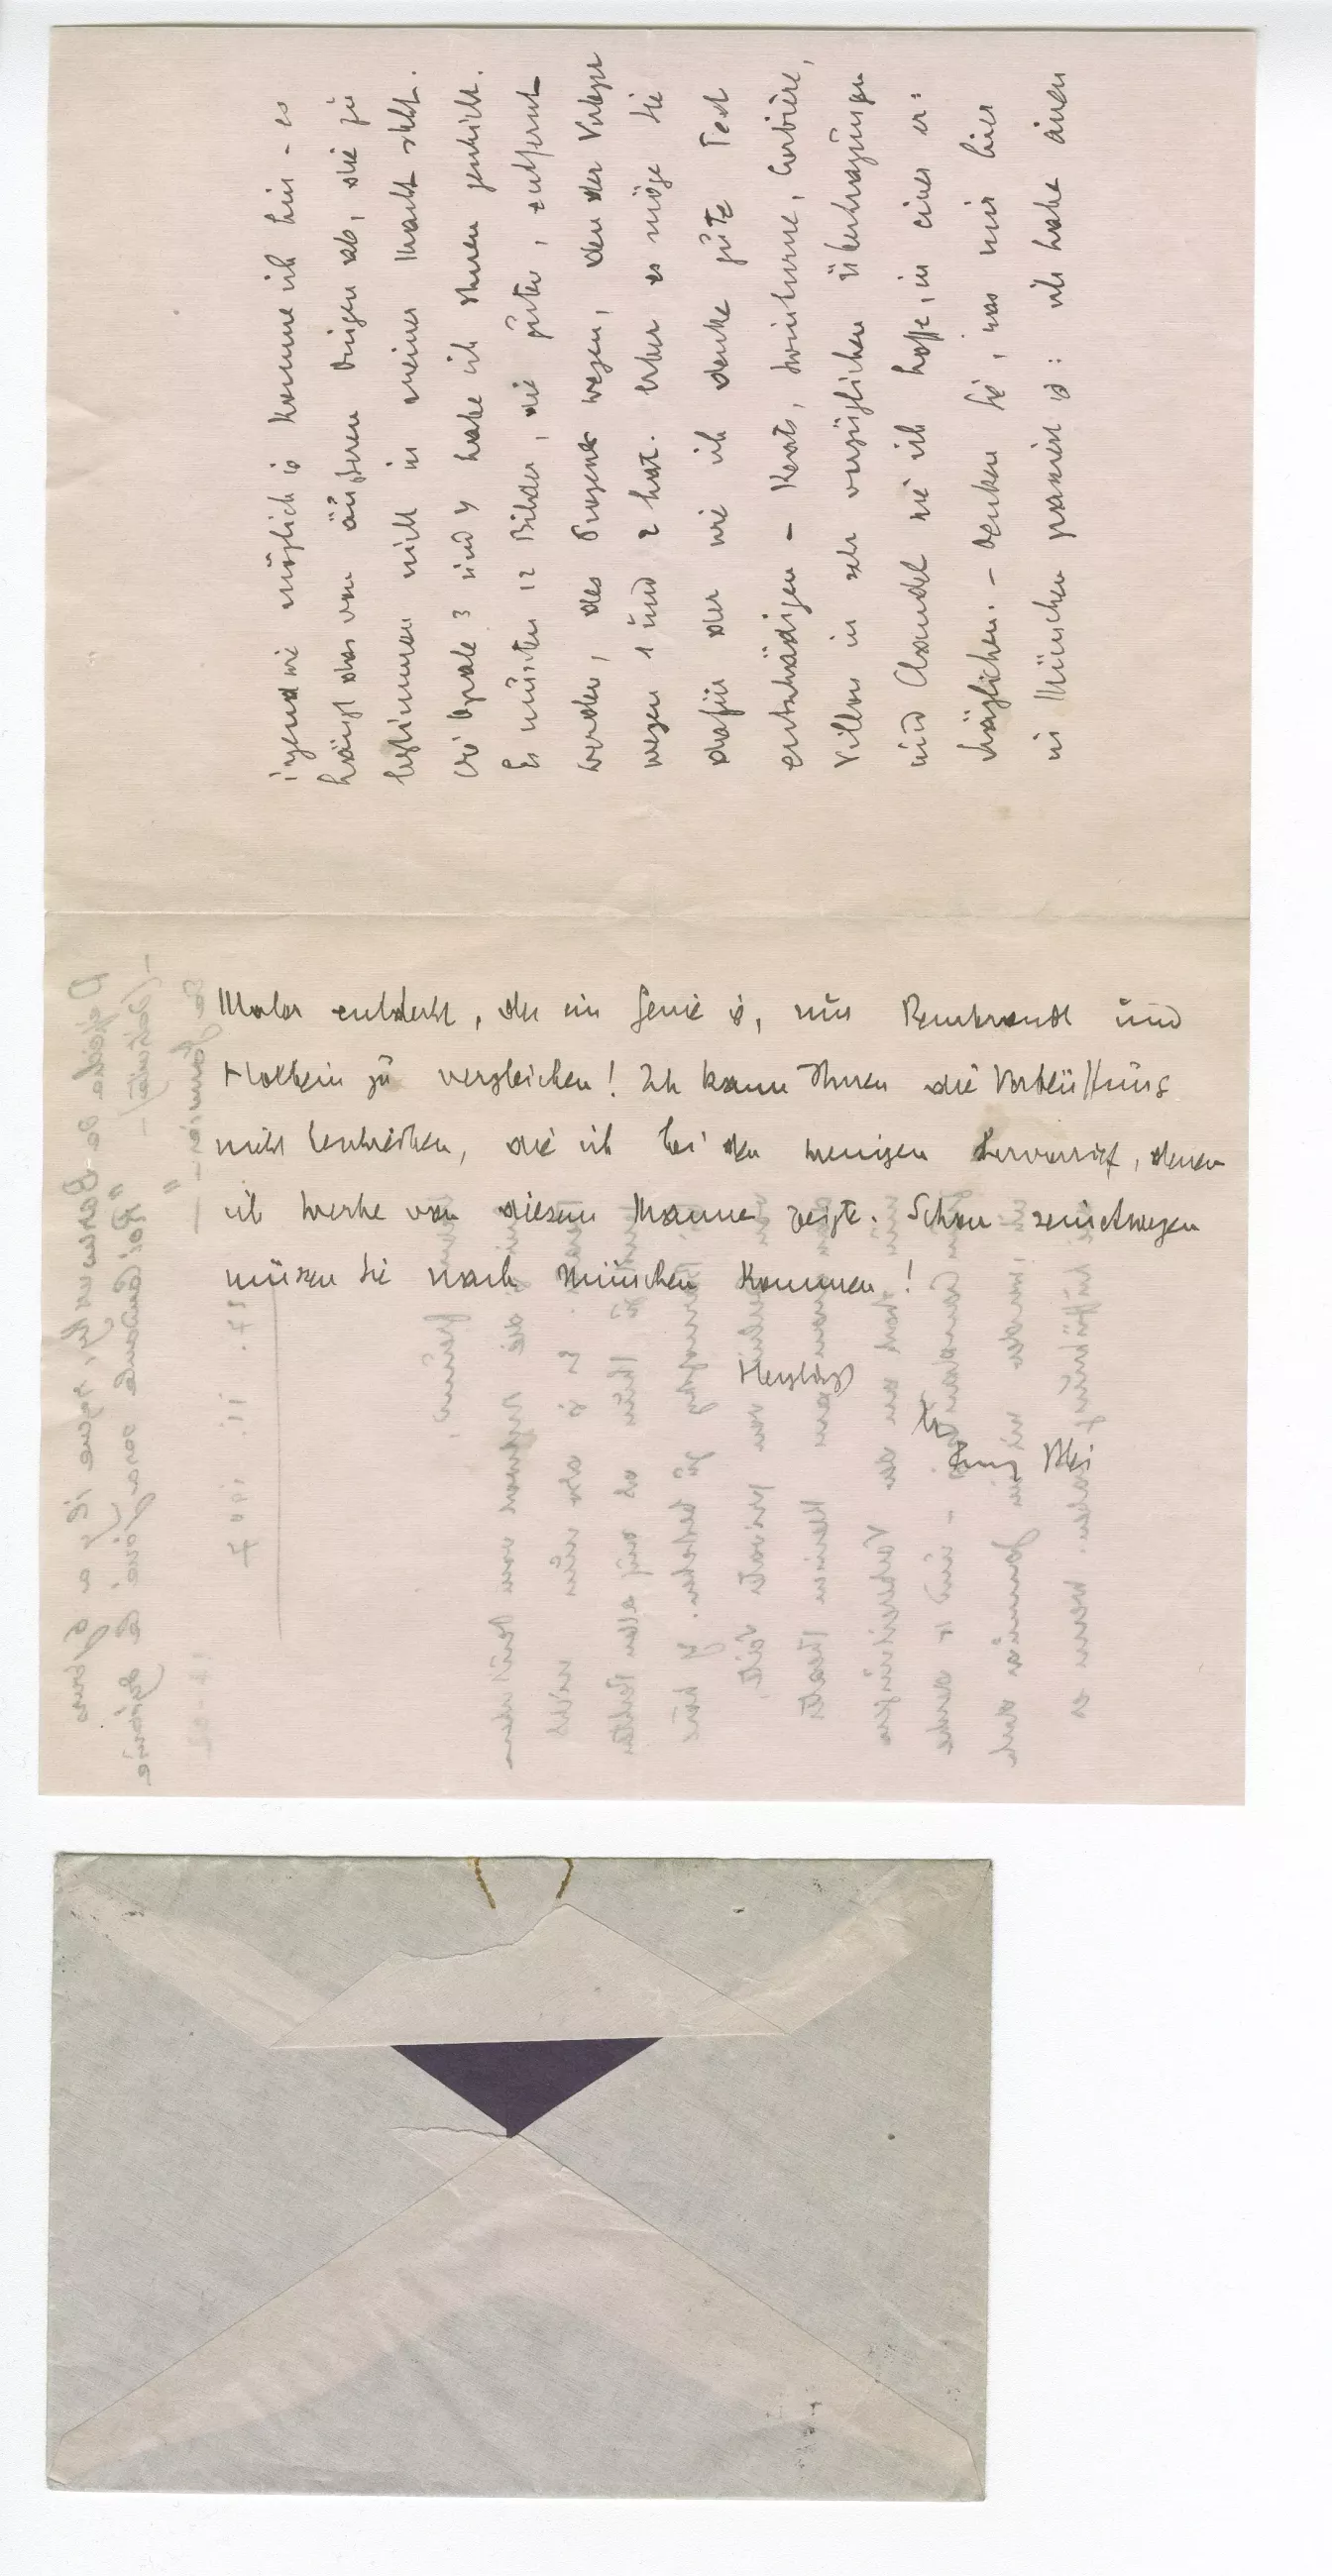 irgendwie möglich is komme ich hin - es
hängt das von äusseren Dingen ab, die zu
bestimmen nicht in meiner Macht steht.
Die Opale 3 und 4 habe ich Ihnen geschickt.
Es müssten 12 Bilder, die guten, entfernt
werden, des Prozesses wegen, den der Verleger
wegen 1 und 2 hat. Aber es möge Sie
dafür der wie ich denke gute Text
entschädigen - Keats, Swinburne, Corbière,
Villon in sehr vorzüglichen Übertragungen
und Claudel wie ich hoffe, in einer er=
träglichen. - Denken Sie, was mir hier
in München passiert is: ich habe einen
Maler entdeckt, der ein Genie is, nur Rembrandt und
Holbein zu vergleichen! Ich kann Ihnen die Verblüffung
nicht beschreiben, die ich bei den wenigen hervorrief, denen
ich Werke von diesem Manne zeigte. Schon seinetwegen
müssen Sie nach München kommen!
Herzlichst
Ihr
Franz Blei